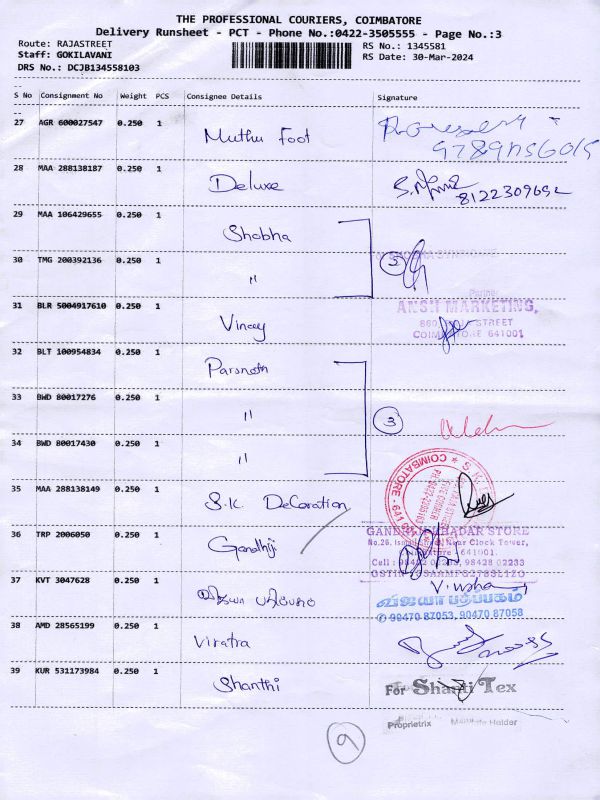 THE PROFESSIONAL COURIERS, COIMBATORE
Delivery Runsheet - PCT - Phone No.:0422-3505555 - Page No.:3
Route: RAJASTREET
RS No.: 1345581
Staff: GOKILAVANI
RS Date: 30-Mar-2024
DRS No.: DCJB134558103
S No Consignment No Weight PCS Consignee Details Signature
27 AGR 600027547 0.250 1 Muthu Foot
28 MAA 288138187 0.250 1 Deluxe 8122309652
29 MAA 106429655 0.250 1 Shobha
30 TMG 200392136 0.250 1 "
Partner
ANSH MARKETING,
31 BLR 5004917610 0.250 1 Vinay
STREET
COIMBATORE 641001
32 BLT 100954834 0.250 1 Parsnath
33 BWD 80017276 0.250 1 " 3
34 BWD 80017430 0.250 1 "
COIMBATORE - 641 001
35 MAA 288138149 0.250 1 S.K. Decoration
36 TRP 2006050 0.250 1 Gandhiji
KHADAR STORE
No.26, Near Clock Tower,
641001.
98428 02233
37 KVT 3047628 0.250 1 விஜயா பதிப்பகம்
விஜயா பதிப்பகம்
90470 87053, 90470 87058
38 AMD 28565199 0.250 1 Viratra
39 KUR 531173984 0.250 1 Shanthi
For Shanti Tex
Proprietrix Holder
9